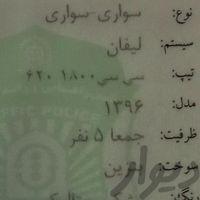 نوع: سواری-سواری
سیستم: لیفان
تیپ: سی سی ۱۸۰۰ ۶۲۰
مدل: ۱۳۹۶
ظرفیت: جمعا ۵ نفر
سوخت: بنزین
رنگ:
FFIC POLICE
دیوار